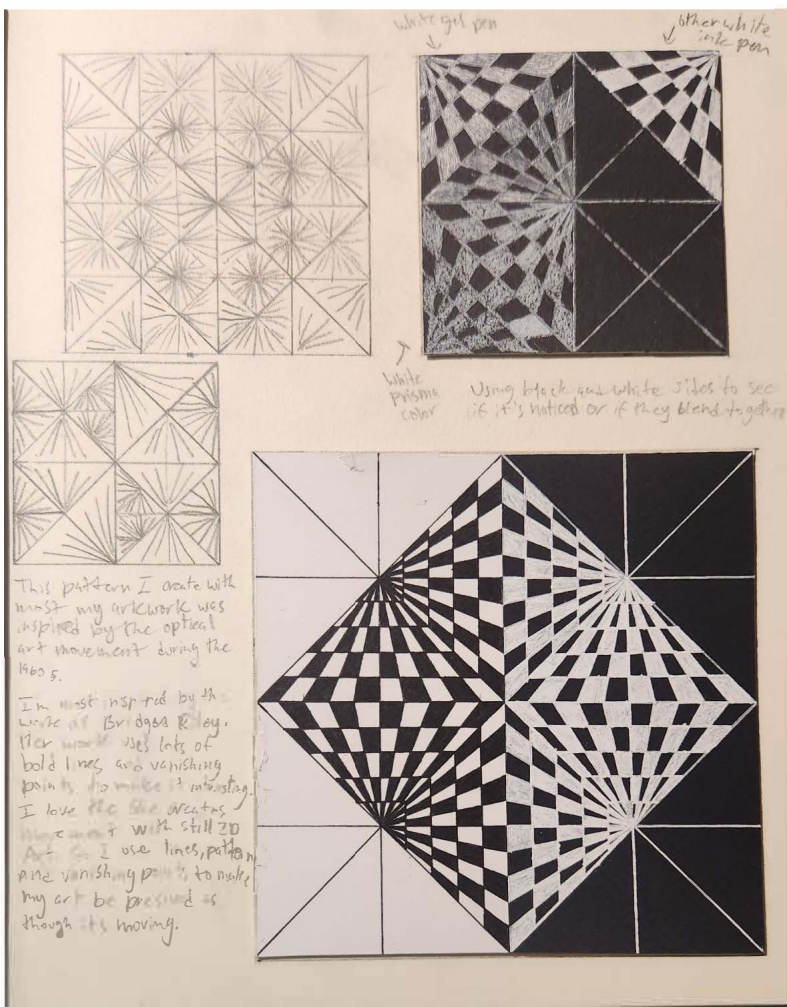 white gel pen
other white
ink pen
white
prisma
color
Using black and white sides to see
if it's noticed or if they blend together
This pattern I create with
most my artwork was
inspired by the optical
art movement during the
1960s.
I'm most inspired by the
work of Bridget Riley.
Her work uses lots of
bold lines and vanishing
points to make it interesting.
I love the She creates
movement with still 2D
Art. So I use lines, pattern
and vanishing points to make
my art be as
though its moving.